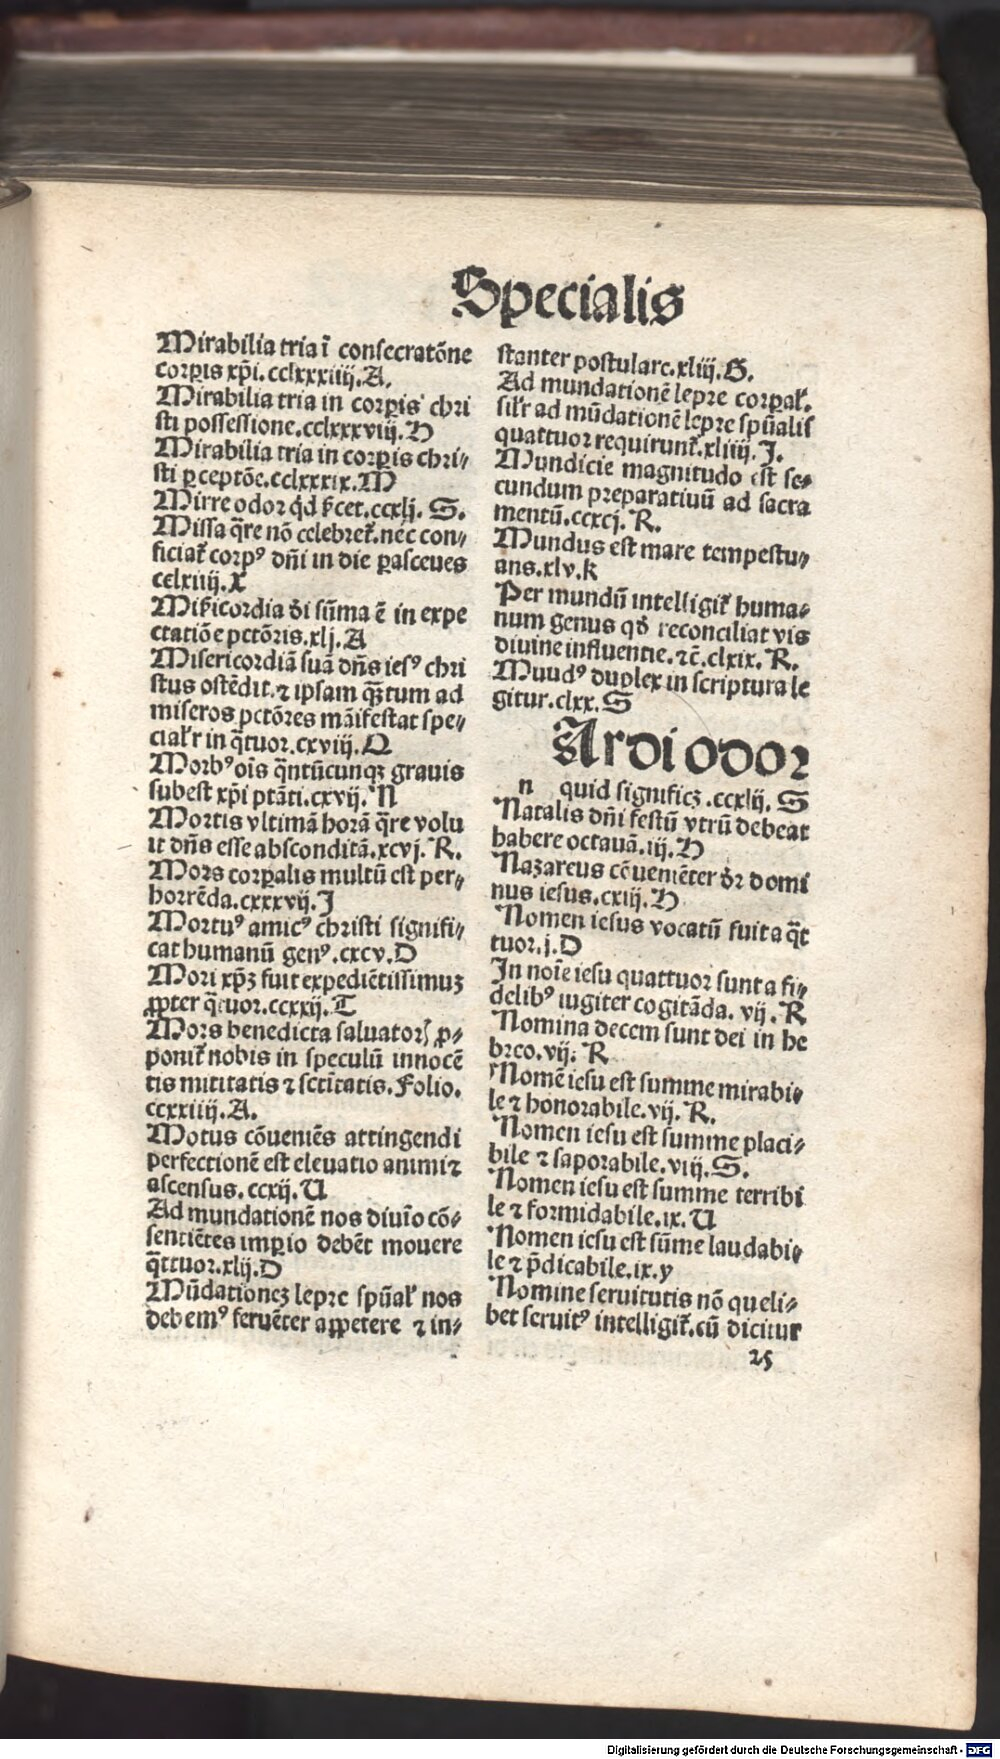 Specialis
Mirabilia tria ī consecratōne
corꝑis xp̄i.cclxxxiiij.A.
Mirabilia tria in corꝑis chri
sti possessione.cclxxxviij.H
Mirabilia tria in corꝑis chri⸗
sti ꝑceptōe.cclxxxix.M
Mirre odor qd̄ cet.ccxlj. S.
Missa q̄re nō celebret᷑.nec con⸗
ficiat᷑ corpꝰ dn̄i in die ꝑasceues
cclxiiij.X
Mis̄icordia di sūma ē in expe
ctatiōe pctōris.xlj.A
Misericordiā suā dn̄s iesꝰ chri
stus ostēdit.⁊ ipsam q̄ꝫtum ad
miseros pctōres māifestat spe⸗
cial'r in q̄tuor.cxviij.Q
Morbꝰ oīs q̄ntūcunqꝫ grauis
subest xp̄i ptāti.cxvij.N
Mortis vltimā horā q̄re volu
it dn̄s esse absconditā.xcvj.R.
Mors corꝑalis multū est per⸗
horrēda.cxxxvij.J
Mortuꝰ amicꝰ christi signifi⸗
cat humanū genꝰ.cxcv.D
Mori xp̄ꝫ fuit expediētissimuꝫ
ꝓpter q̄tuor.ccxxij.T
Mors benedicta saluatorꝭ ꝓ⸗
ponit᷑ nobis in speculū innocē
tis mititatis ⁊ sctītatis.Folio.
ccxxiiij.A.
Motus cōueniēs attingendi
perfectionē est eleuatio animi ⁊
ascensus.ccxij.U
Ad mundationē nos diuīo cō⸗
sentiētes imꝑio debēt mouere
q̄ttuor.xlij.D
Mūdationeꝫ lepre spūal' nos
debemꝰ feruēter aꝓpetere ⁊ in⸗
stanter postulare.xliij.G.
Ad mundationē lepre corꝑal'.
sil'r ad mūdationē lepre spūalis
quattuor requirunt᷑.xliiij.J.
Mundicie magnitudo est se⸗
cundum preparatiuū ad sacra
mentū.ccxcj.R.
Mundus est mare tempestu⸗
ans.xlv.k
Per mundū intelligit᷑ huma⸗
num genus qd̄ reconciliat vis
diuine influentie.⁊c̄.clxix.R.
Muudꝰ duplex in scriptura le
gitur.clxx.S
Ardi odor
n quid significꝫ.ccxlij.S
Natalis dn̄i festū vtrū debeat
habere octauā.iij.H
Nazareus cōueniēter dr̄ domi
nus iesus.cxiij.H
Nomen iesus vocatū fuit a q̄t
tuor.j.D
In noīe iesu quattuor sunt a fi⸗
delibꝰ iugiter cogitāda. vij.R
Nomina decem sunt dei in he
breo.vij. R
Nomē iesu est summe mirabi⸗
le ⁊ honorabile.vij.R.
Nomen iesu est summe placi⸗
bile ⁊ saporabile.viij.S.
Nomen iesu est summe terribi
le ⁊ formidabile.ix.U
Nomen iesu est sūme laudabi⸗
le ⁊ p̄dicabile.ix.y
Nomine seruitutis nō queli⸗
bet seruitꝰ intelligit᷑.cū dicitur
25
Digitalisierung gefördert durch die Deutsche Forschungsgemeinschaft - DFG